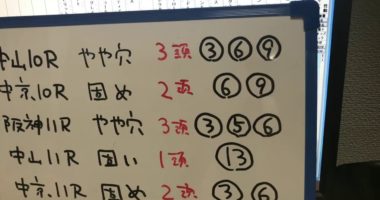 中山10R やや穴 3頭 ③⑥⑨
中京10R 固め 2頭 ⑥⑨
阪神11R やや穴 3頭 ③⑤⑥
中山11R 固い 1頭 ⑬
中京11R 固め 2頭 ③⑥